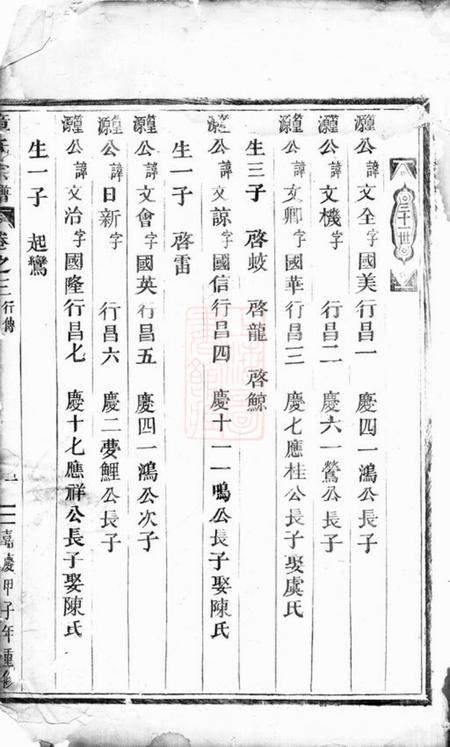 三十一世
篁源公諱文全字國美行昌一 慶四一鴻公長子
篁源公諱文機字 行昌二 慶六一鶯公長子
篁源公諱文卿字國華行昌三 慶七應桂公長子娶虞氏
生三子 啓蛟 啓龍 啓鯨
篁源公諱文諒字國信行昌四 慶十一一鳴公長子娶陳氏
生一子 啓雷
篁源公諱文會字國英行昌五 慶四一鴻公次子
篁源公諱日新字 行昌六 慶二夢鯉公長子
篁源公諱文治字國隆行昌七 慶十七應祥公長子娶陳氏
生一子 起鸞
章氏宗譜 卷之三行傳 一 嘉慶甲子年重修